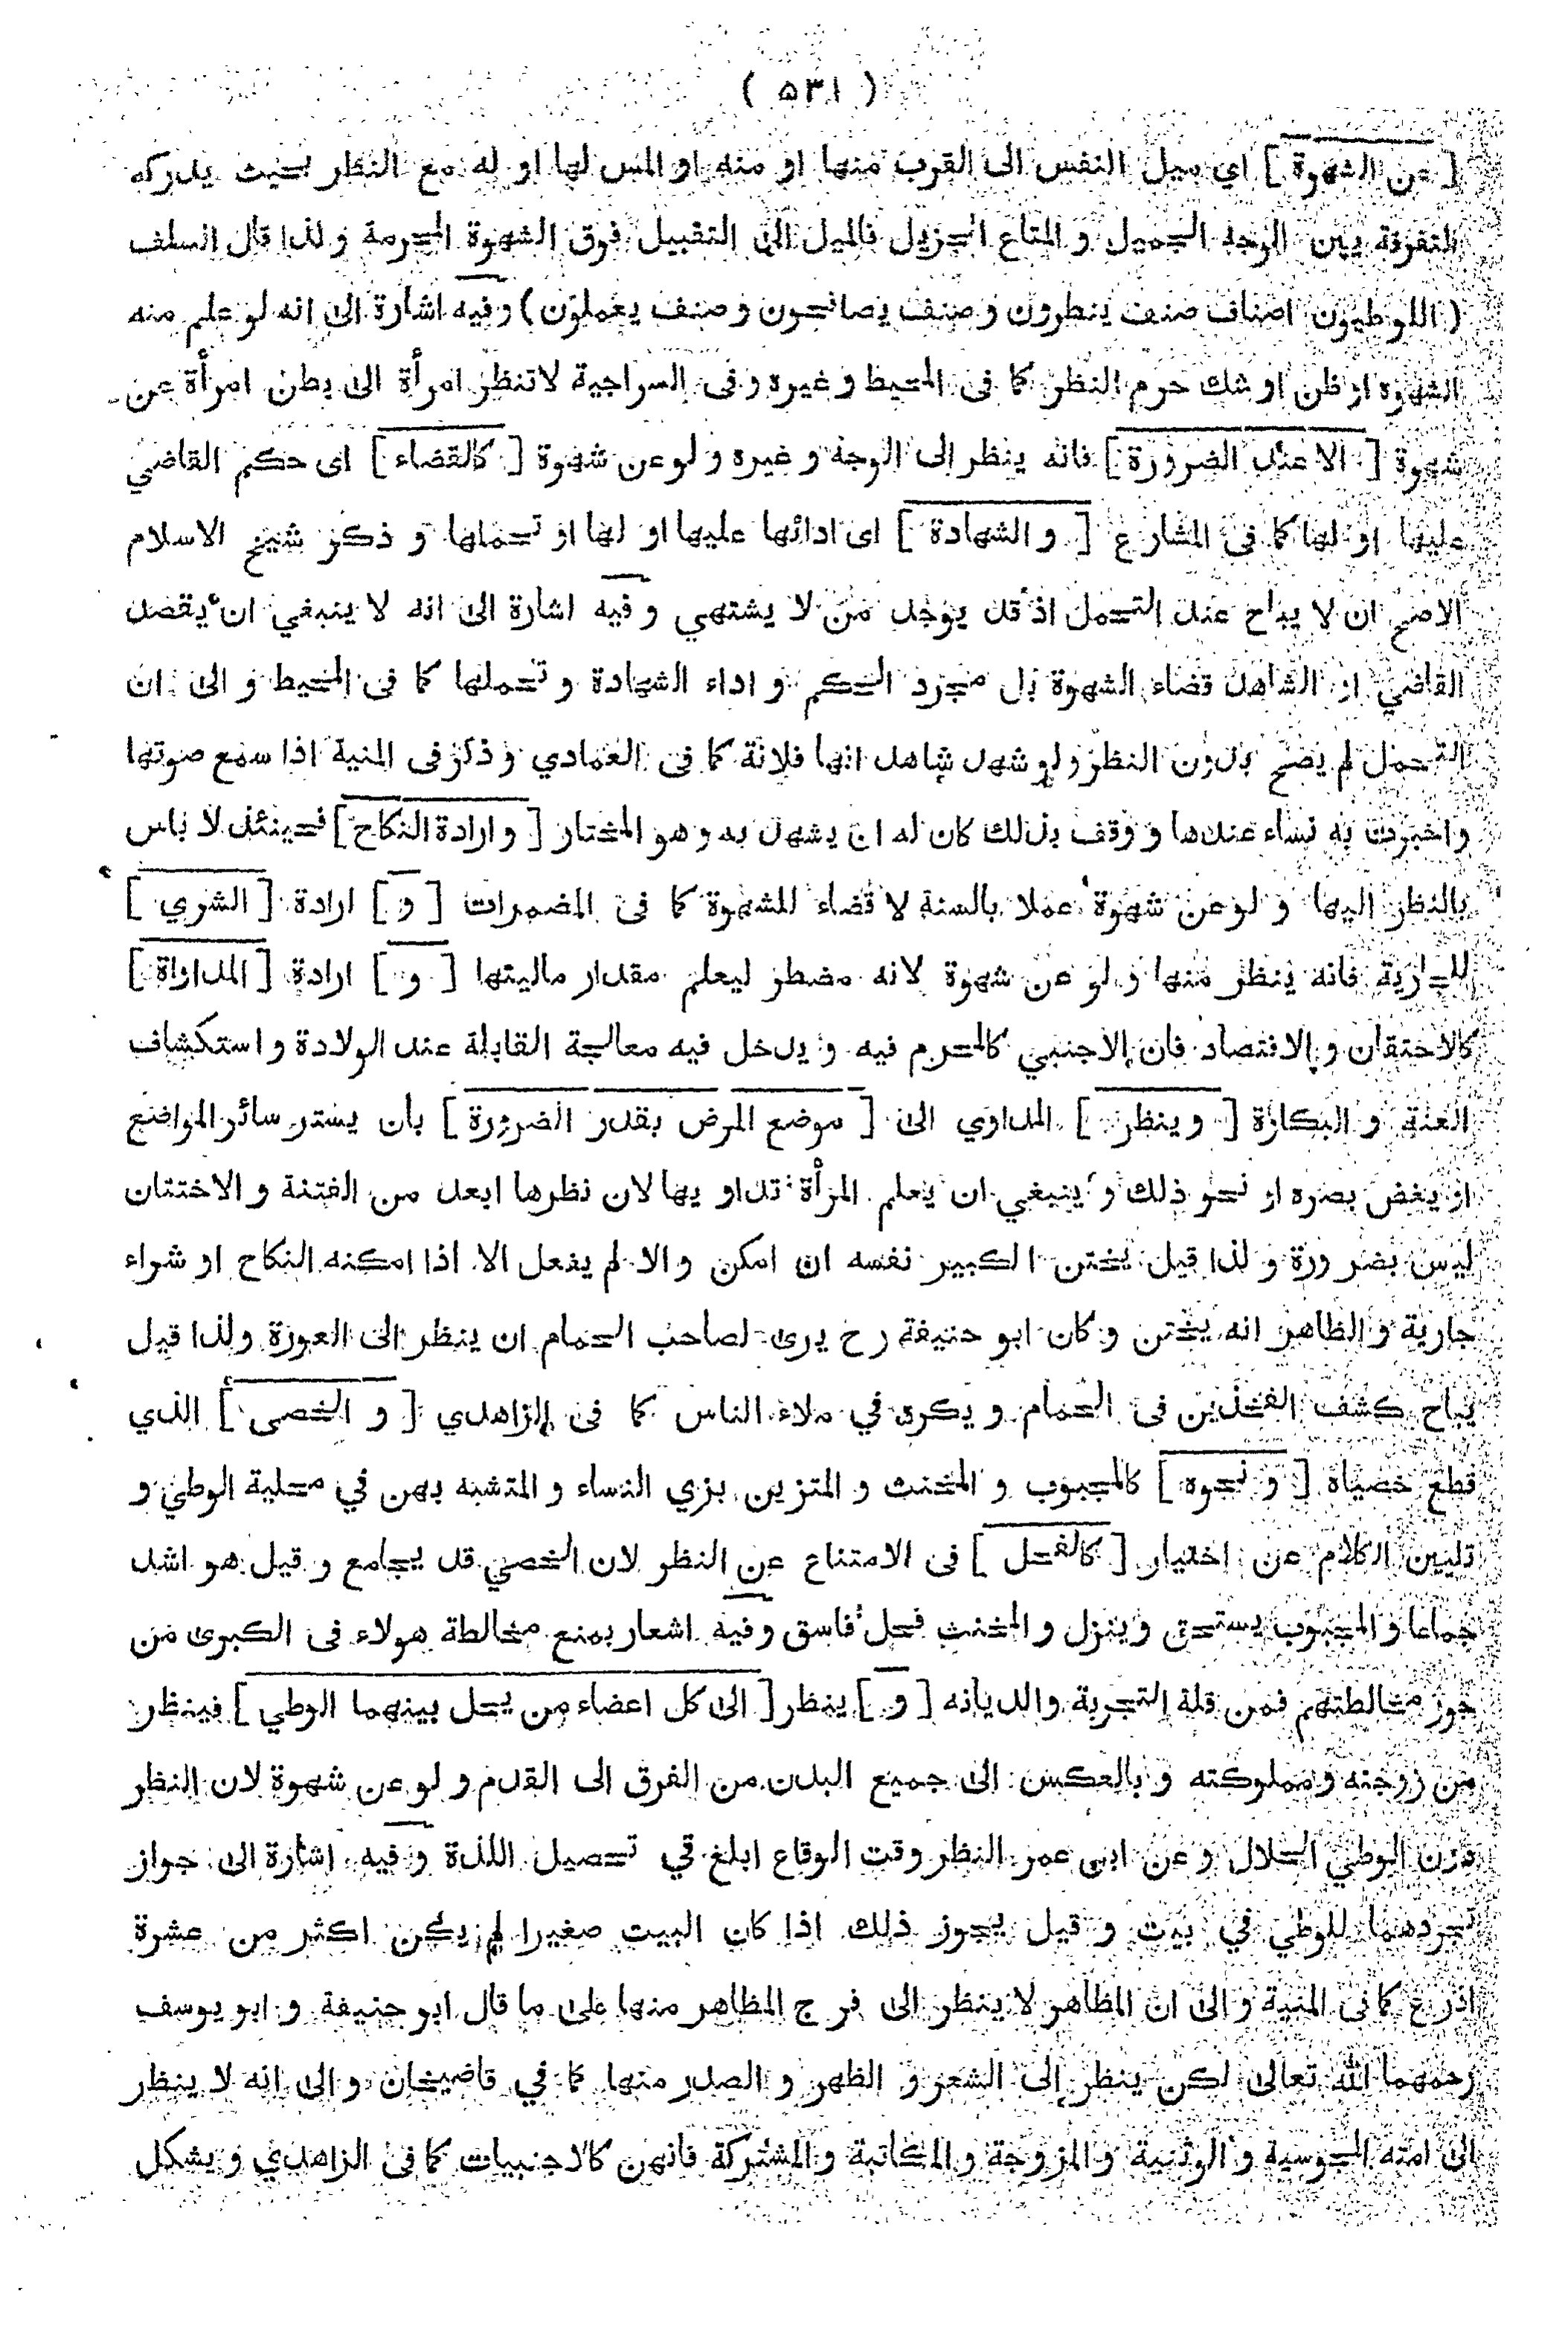 ( ٥٣١ )
[ عن الشهوة ] اي ميل النفس الى القرب منها او منه او المس لها او له مع النظر بحيث يدركه
التفرقة بين الوجه الجميل و المتاع الجزيل فالميل الى التقبيل فوق الشهوة المحرمة و لذا قال السلف
( اللوطيون اصناف صنف ينظرون و صنف يصافحون و صنف يعملون ) و فيه اشارة الى انه لو علم منه
الشهوة او ظن او شك حرم النظر كما فى المحيط و غيره و فى السراجية لا تنظر امرأة الى بطن امرأة عن
شهوة [ الا عند الضرورة ] فانه ينظر الى الوجه و غيره و لو عن شهوة [ كالقضاء ] اى حكم القاضي
عليها او لها كما فى المشارع [ و الشهادة ] اى ادائها عليها او لها او تحملها و ذكر شيخ الاسلام
الاصح ان لا يباح عند التحمل اذ قد يوجد من لا يشتهي و فيه اشارة الى انه لا ينبغي ان يقصد
القاضي او الشاهد قضاء الشهوة بل مجرد الحكم و اداء الشهادة و تحملها كما فى المحيط و الى ان
التحمل لم يصح بدون النظر و لو شهد شاهد انها فلانة كما فى العمادي و ذكر فى المنية اذا سمع صوتها
و اخبرت به نساء عندها و وقف بذلك كان له ان يشهد به و هو المختار [ و ارادة النكاح ] فحينئذ لا باس
بالنظر اليها و لو عن شهوة عملا بالسنة لا قضاء للشهوة كما فى المضمرات [ و ] ارادة [ الشري ]
للجارية فانه ينظر منها و لو عن شهوة لانه مضطر ليعلم مقدار ماليتها [ و ] ارادة [ المداواة ]
كالاحتقان و الافتصاد فان الاجنبي كالمحرم فيه و يدخل فيه معالجة القابلة عند الولادة و استكشاف
العنة و البكارة [ و ينظر ] المداوي الى [ موضع المرض بقدر الضرورة ] بان يستر سائر المواضع
او يغض بصره او نحو ذلك و ينبغي ان يعلم المرأة تداو يها لان نظرها ابعد من الفتنة و الاختتان
ليس بضرورة و لذا قيل يختن الكبير نفسه ان امكن و الا لم يفعل الا اذا امكنه النكاح او شراء
جارية و الظاهر انه يختن و كان ابو حنيفة رح يرى لصاحب الحمام ان ينظر الى العورة و لذا قيل
يباح كشف الفخذين فى الحمام و يكره في ملاء الناس كما فى الزاهدي [ و الخصى ] الذي
قطع خصياه [ و نحوه ] كالمجبوب و المخنث و المتزين بزي النساء و المتشبه بهن في محلية الوطي و
تليين الكلام عن اختيار [ كالفحل ] فى الامتناع عن النظر لان الخصي قد يجامع و قيل هو اشد
جماعا و المجبوب يستحق و ينزل و المخنث فحل فاسق و فيه اشعار بمنع مخالطة هولاء فى الكبرى من
جوز مخالطتهم فمن قلة التجربة و الديانه [ و ] ينظر [ الى كل اعضاء من يحل بينهما الوطي ] فينظر
من زوجته و مملوكته و بالعكس الى جميع البدن من الفرق الى القدم و لو عن شهوة لان النظر
دون الوطي الحلال و عن ابن عمر النظر وقت الوقاع ابلغ في تحصيل اللذة و فيه اشارة الى جواز
تجردهما للوطي في بيت و قيل يجوز ذلك اذا كان البيت صغيرا لم يكن اكثر من عشرة
اذرع كما فى المنية و الى ان المظاهر لا ينظر الى فرج المظاهر منها على ما قال ابو حنيفة و ابو يوسف
رحمهما الله تعالى لكن ينظر الى الشعر و الظهر و الصدر منها كما في قاضيخان و الى انه لا ينظر
الى امته المجوسية و الوثنية و المزوجة و المكاتبة و المشتركة فانهن كالاجنبيات كما فى الزاهدي و يشكل